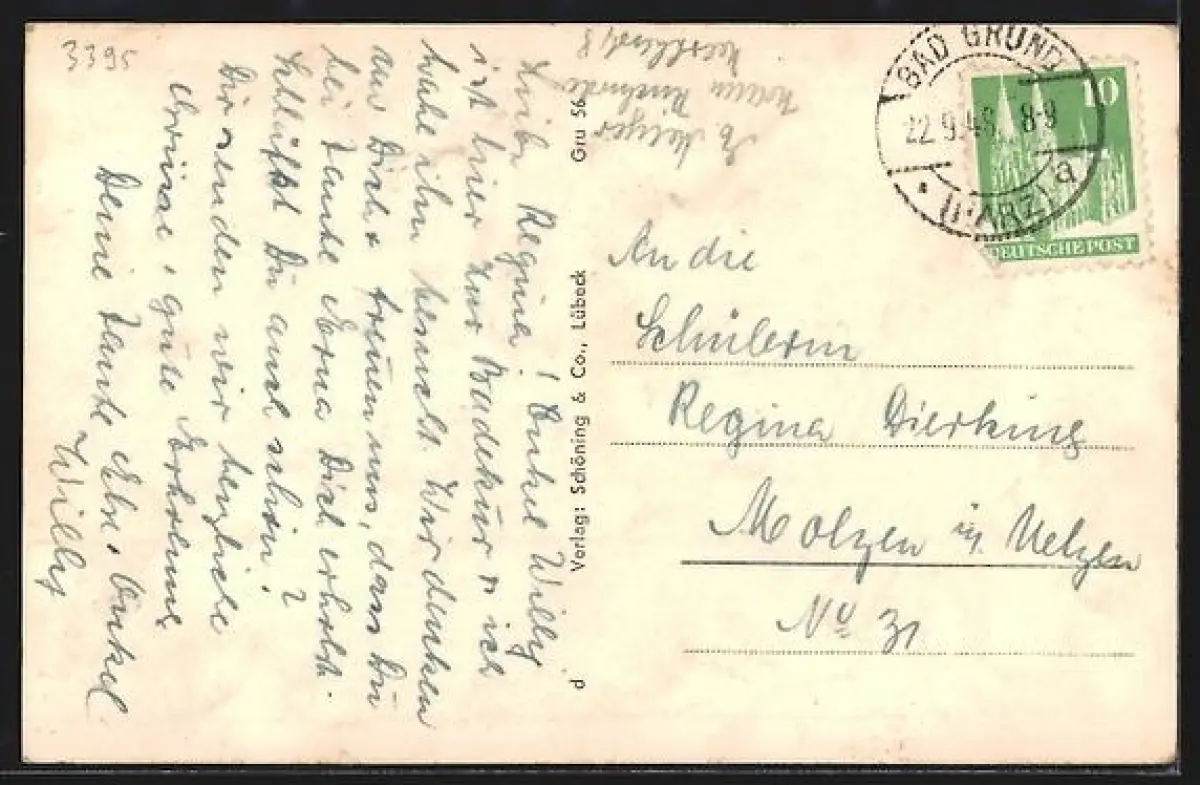 3395
Liebe Regina! Onkel Willy
ist hier zur Badekur u. ich
habe ihn besucht. Wir denken
an Dich u. freuen uns, dass Du
bei Tante Erna Dich erholst.
Schläfst Du auch schön?
Dir senden wir herzliche
Grüsse, gute Erholung
Deine Tante Else, Onkel
Willy
Verlag: Schöning & Co., Lübeck
Gru 56
d
BAD GRUND
22.9.49. 8-9
(HARZ) a
10
DEUTSCHE POST
An die
Schülerin
Regina Dierking
Molzen ü. Uelzen
No 31